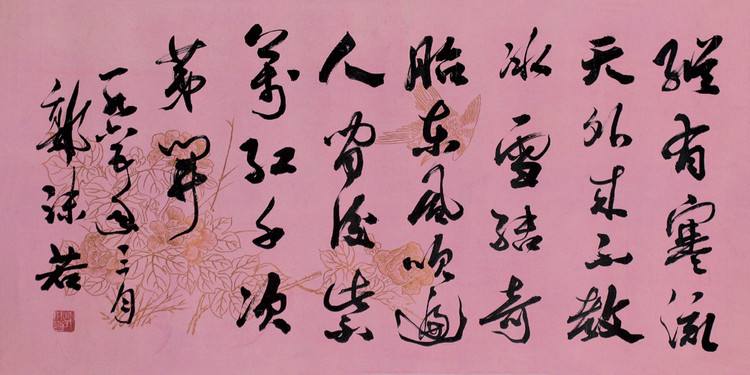 縱有寒流
天外来不教
冰雪結奇
胎東風吹遍
人間後紫
萬紅千次
第開
一九六五年三月
郭沫若